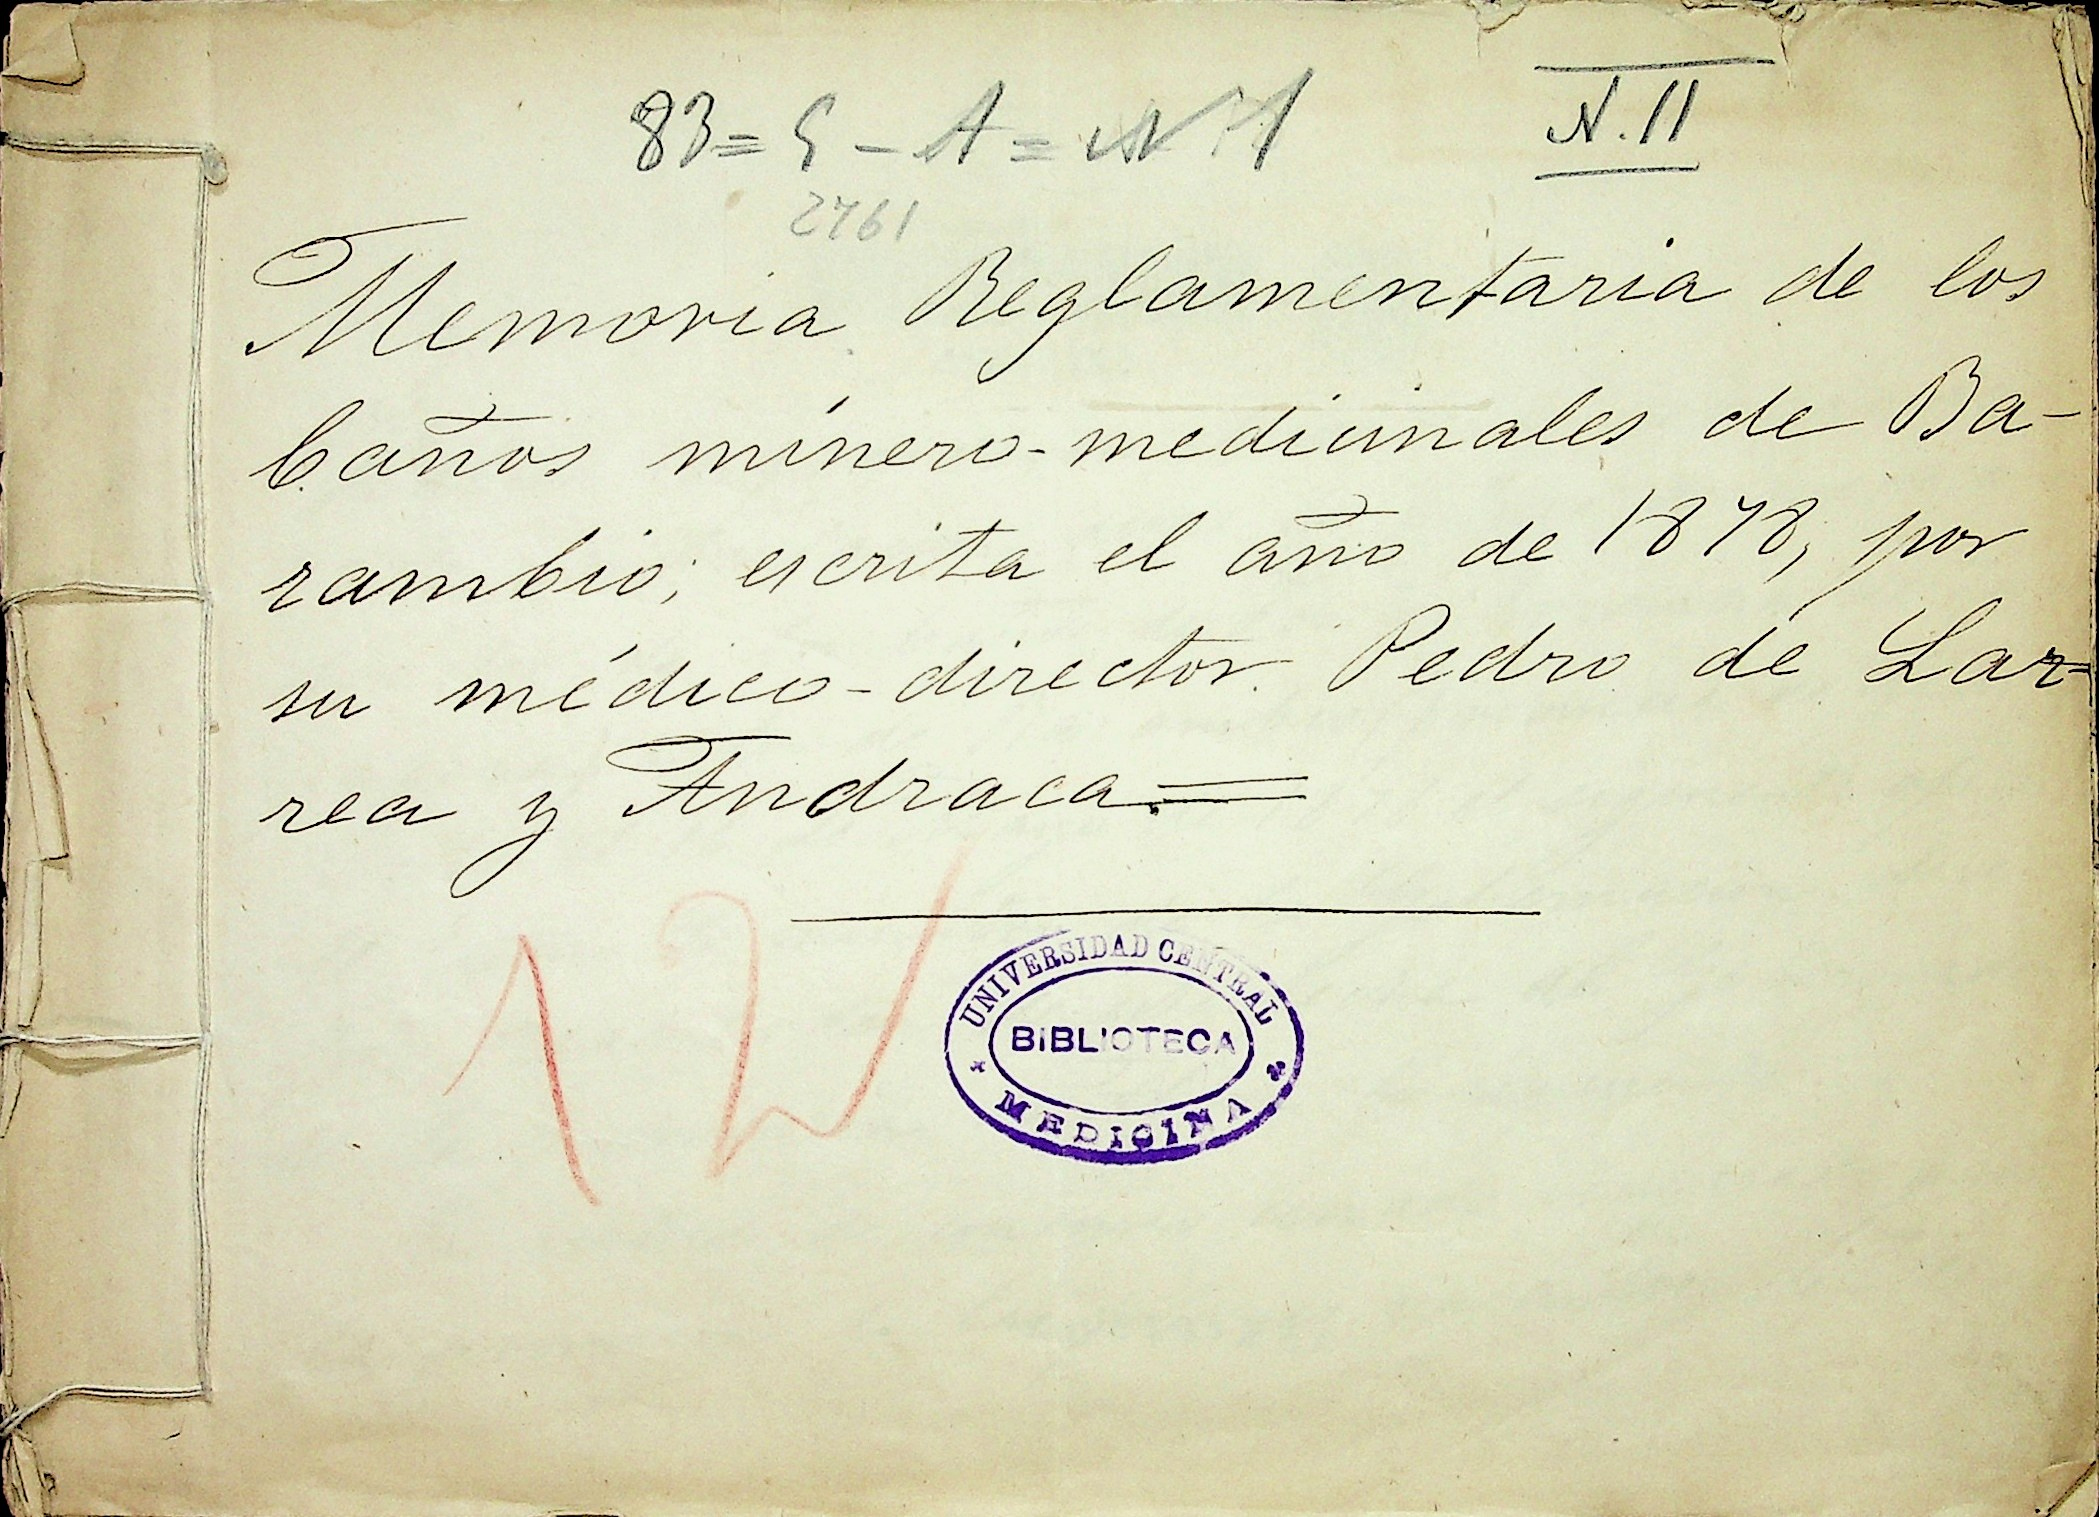 83 = S - A = Nº 1
N. 11
2761
Memoria Reglamentaria de los
baños mínero-medicinales de Ba-
rambio; escrita el año de 1878, por
su médico-director Pedro de Lar-
rea y Andraca.=
12
UNIVERSIDAD CENTRAL
BIBLIOTECA
MEDICINA